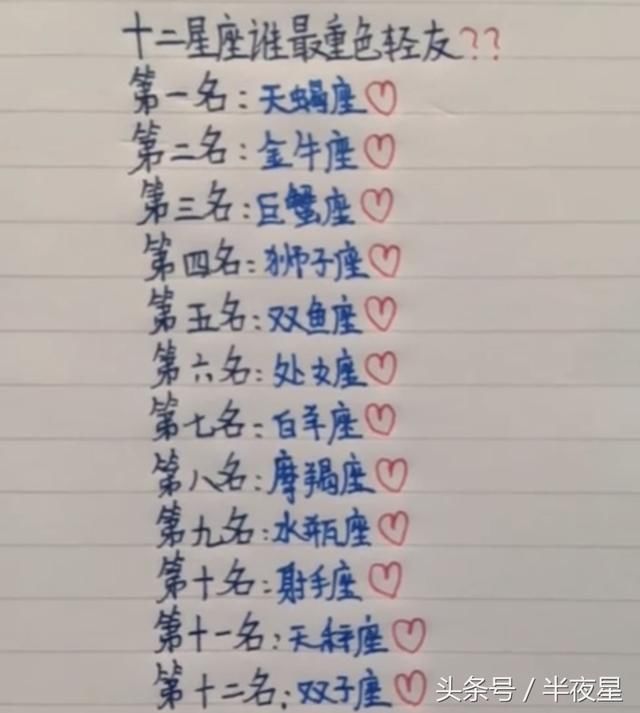 十二星座谁最重色轻友??
第一名:天蝎座♡
第二名:金牛座♡
第三名:巨蟹座♡
第四名:狮子座♡
第五名:双鱼座♡
第六名:处女座♡
第七名:白羊座♡
第八名:摩羯座♡
第九名:水瓶座♡
第十名:射手座♡
第十一名:天秤座♡
第十二名:双子座♡
头条号/半夜星